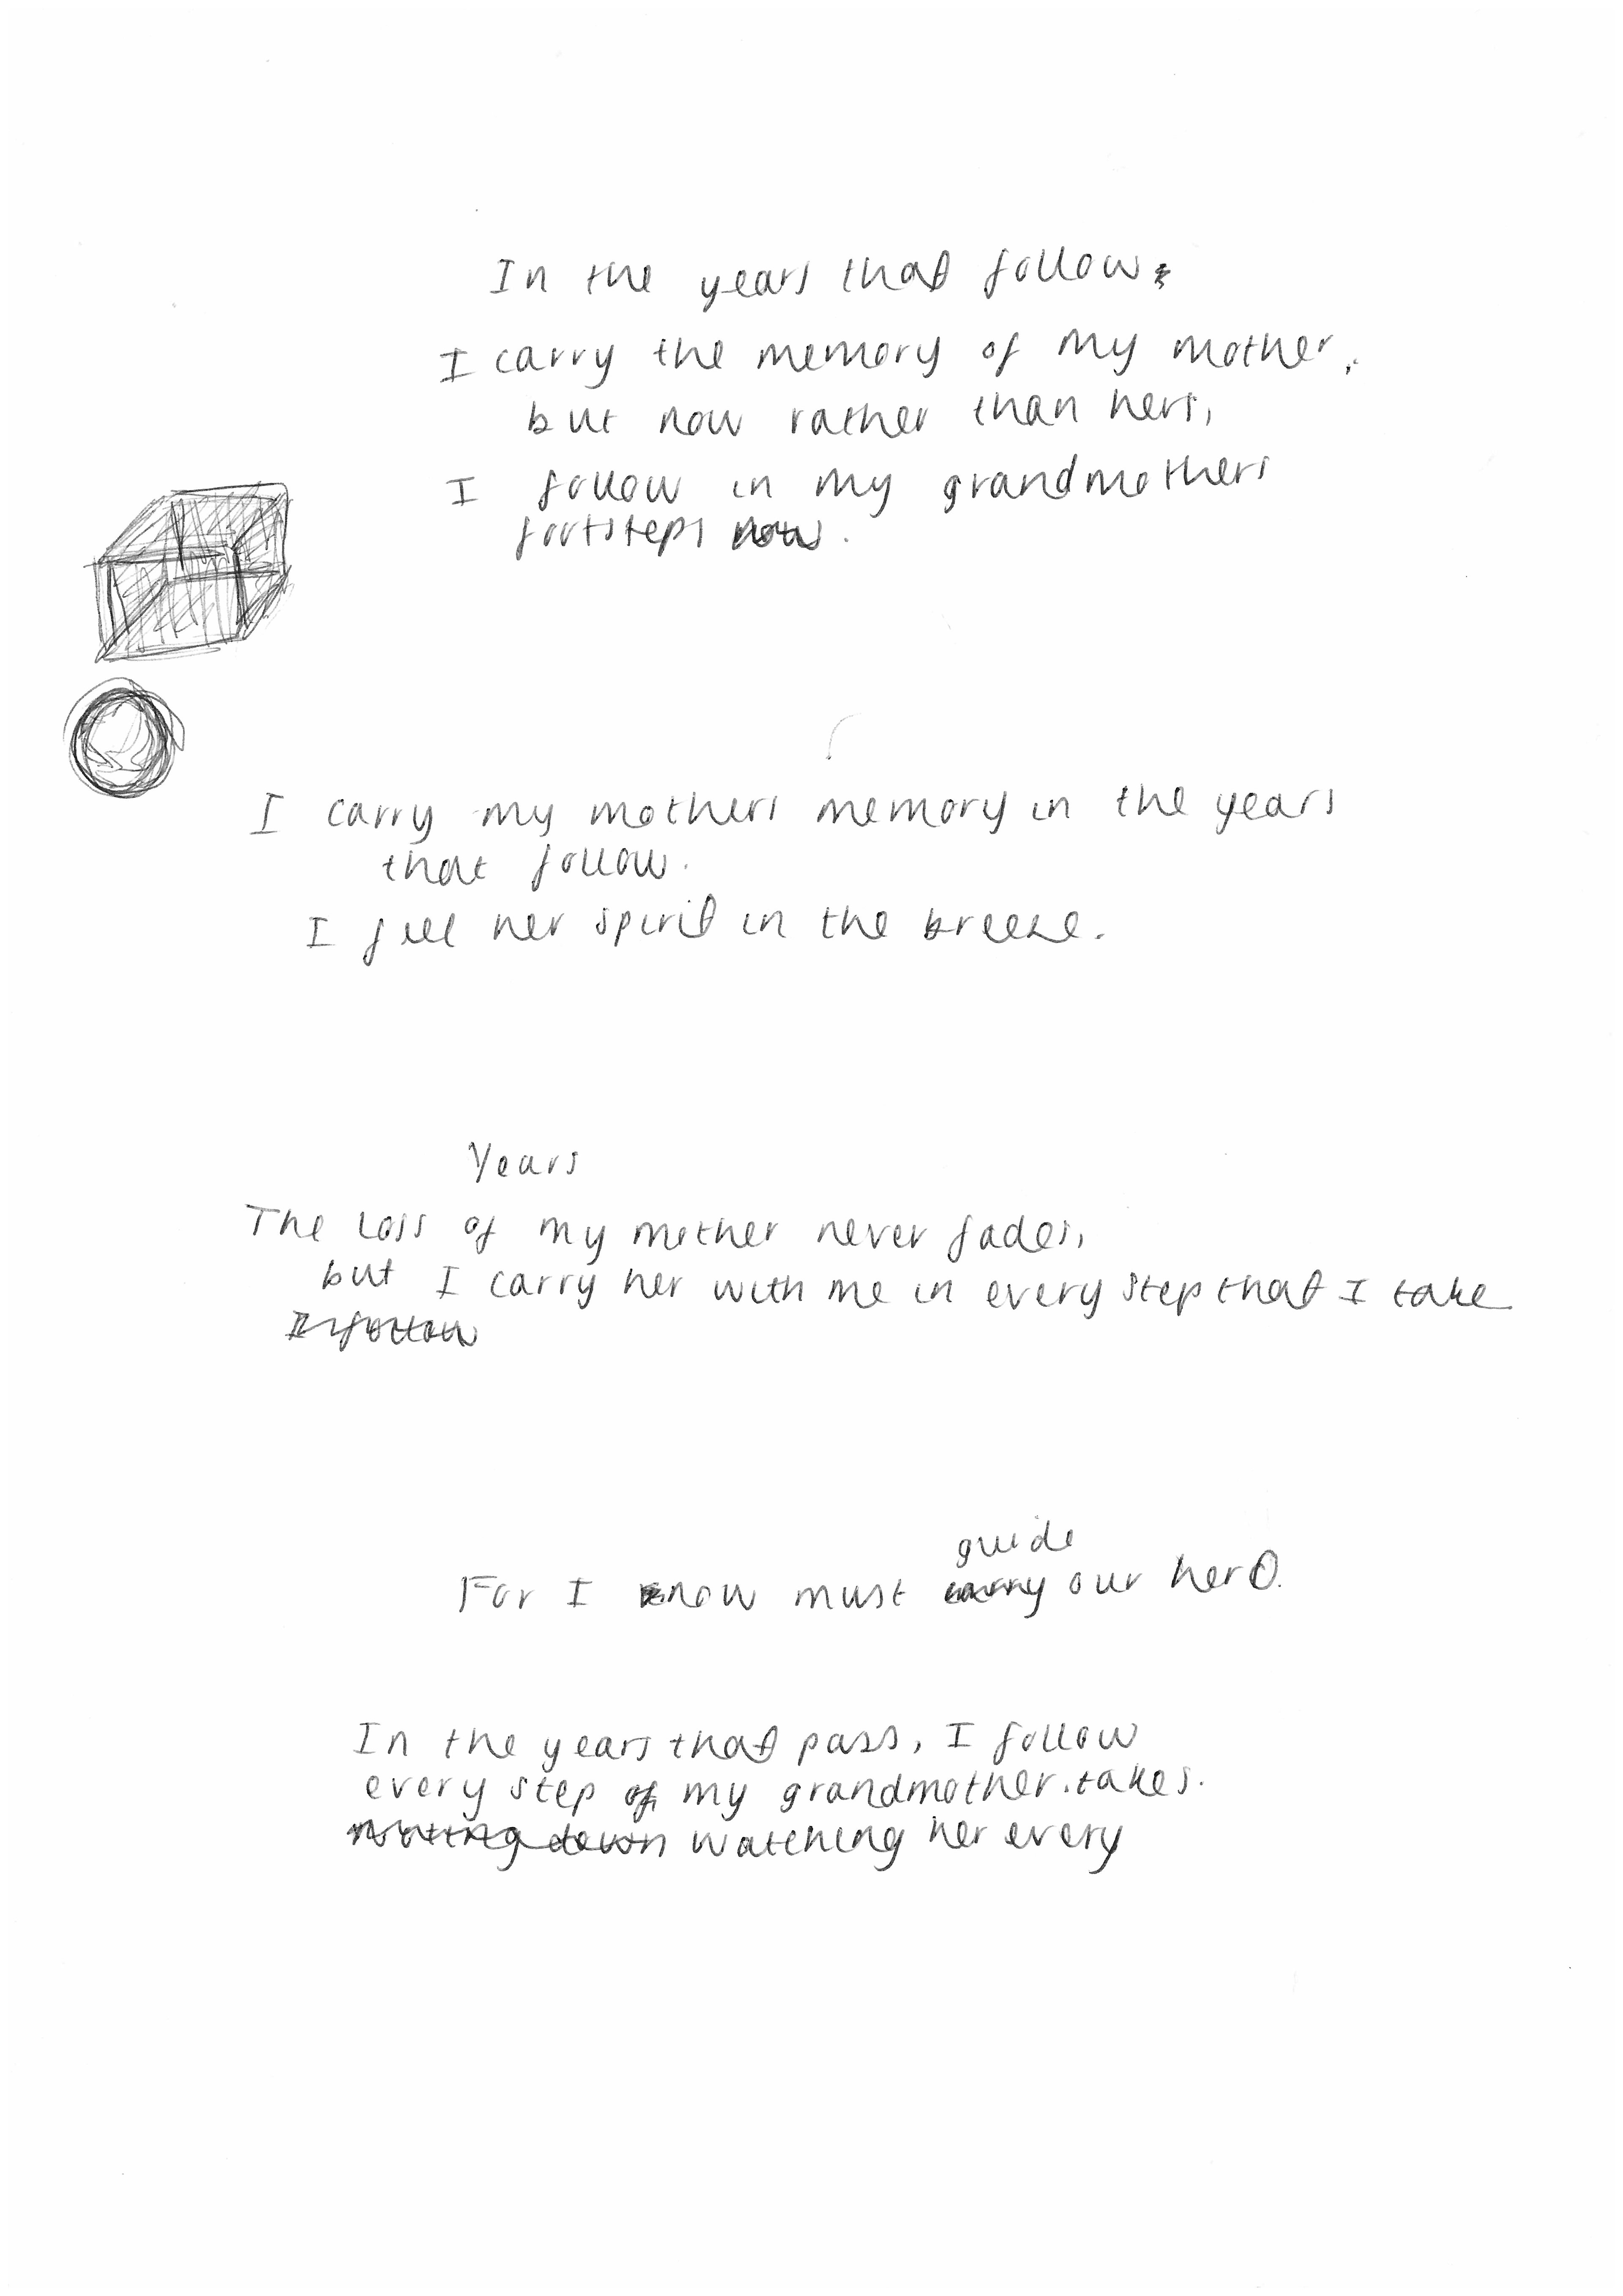 In the years that follow
I carry the memory of my mother,
but now rather than hers,
I follow in my grandmothers
footsteps now.
I carry my mothers memory in the years
that follow.
I feel her spirit in the breeze.
Years
The loss of my mother never fades,
but I carry her with me in every step that I take
I follow
guide
For I now must carry our hero.
In the years that pass, I follow
every step of my grandmother takes.
watching her every